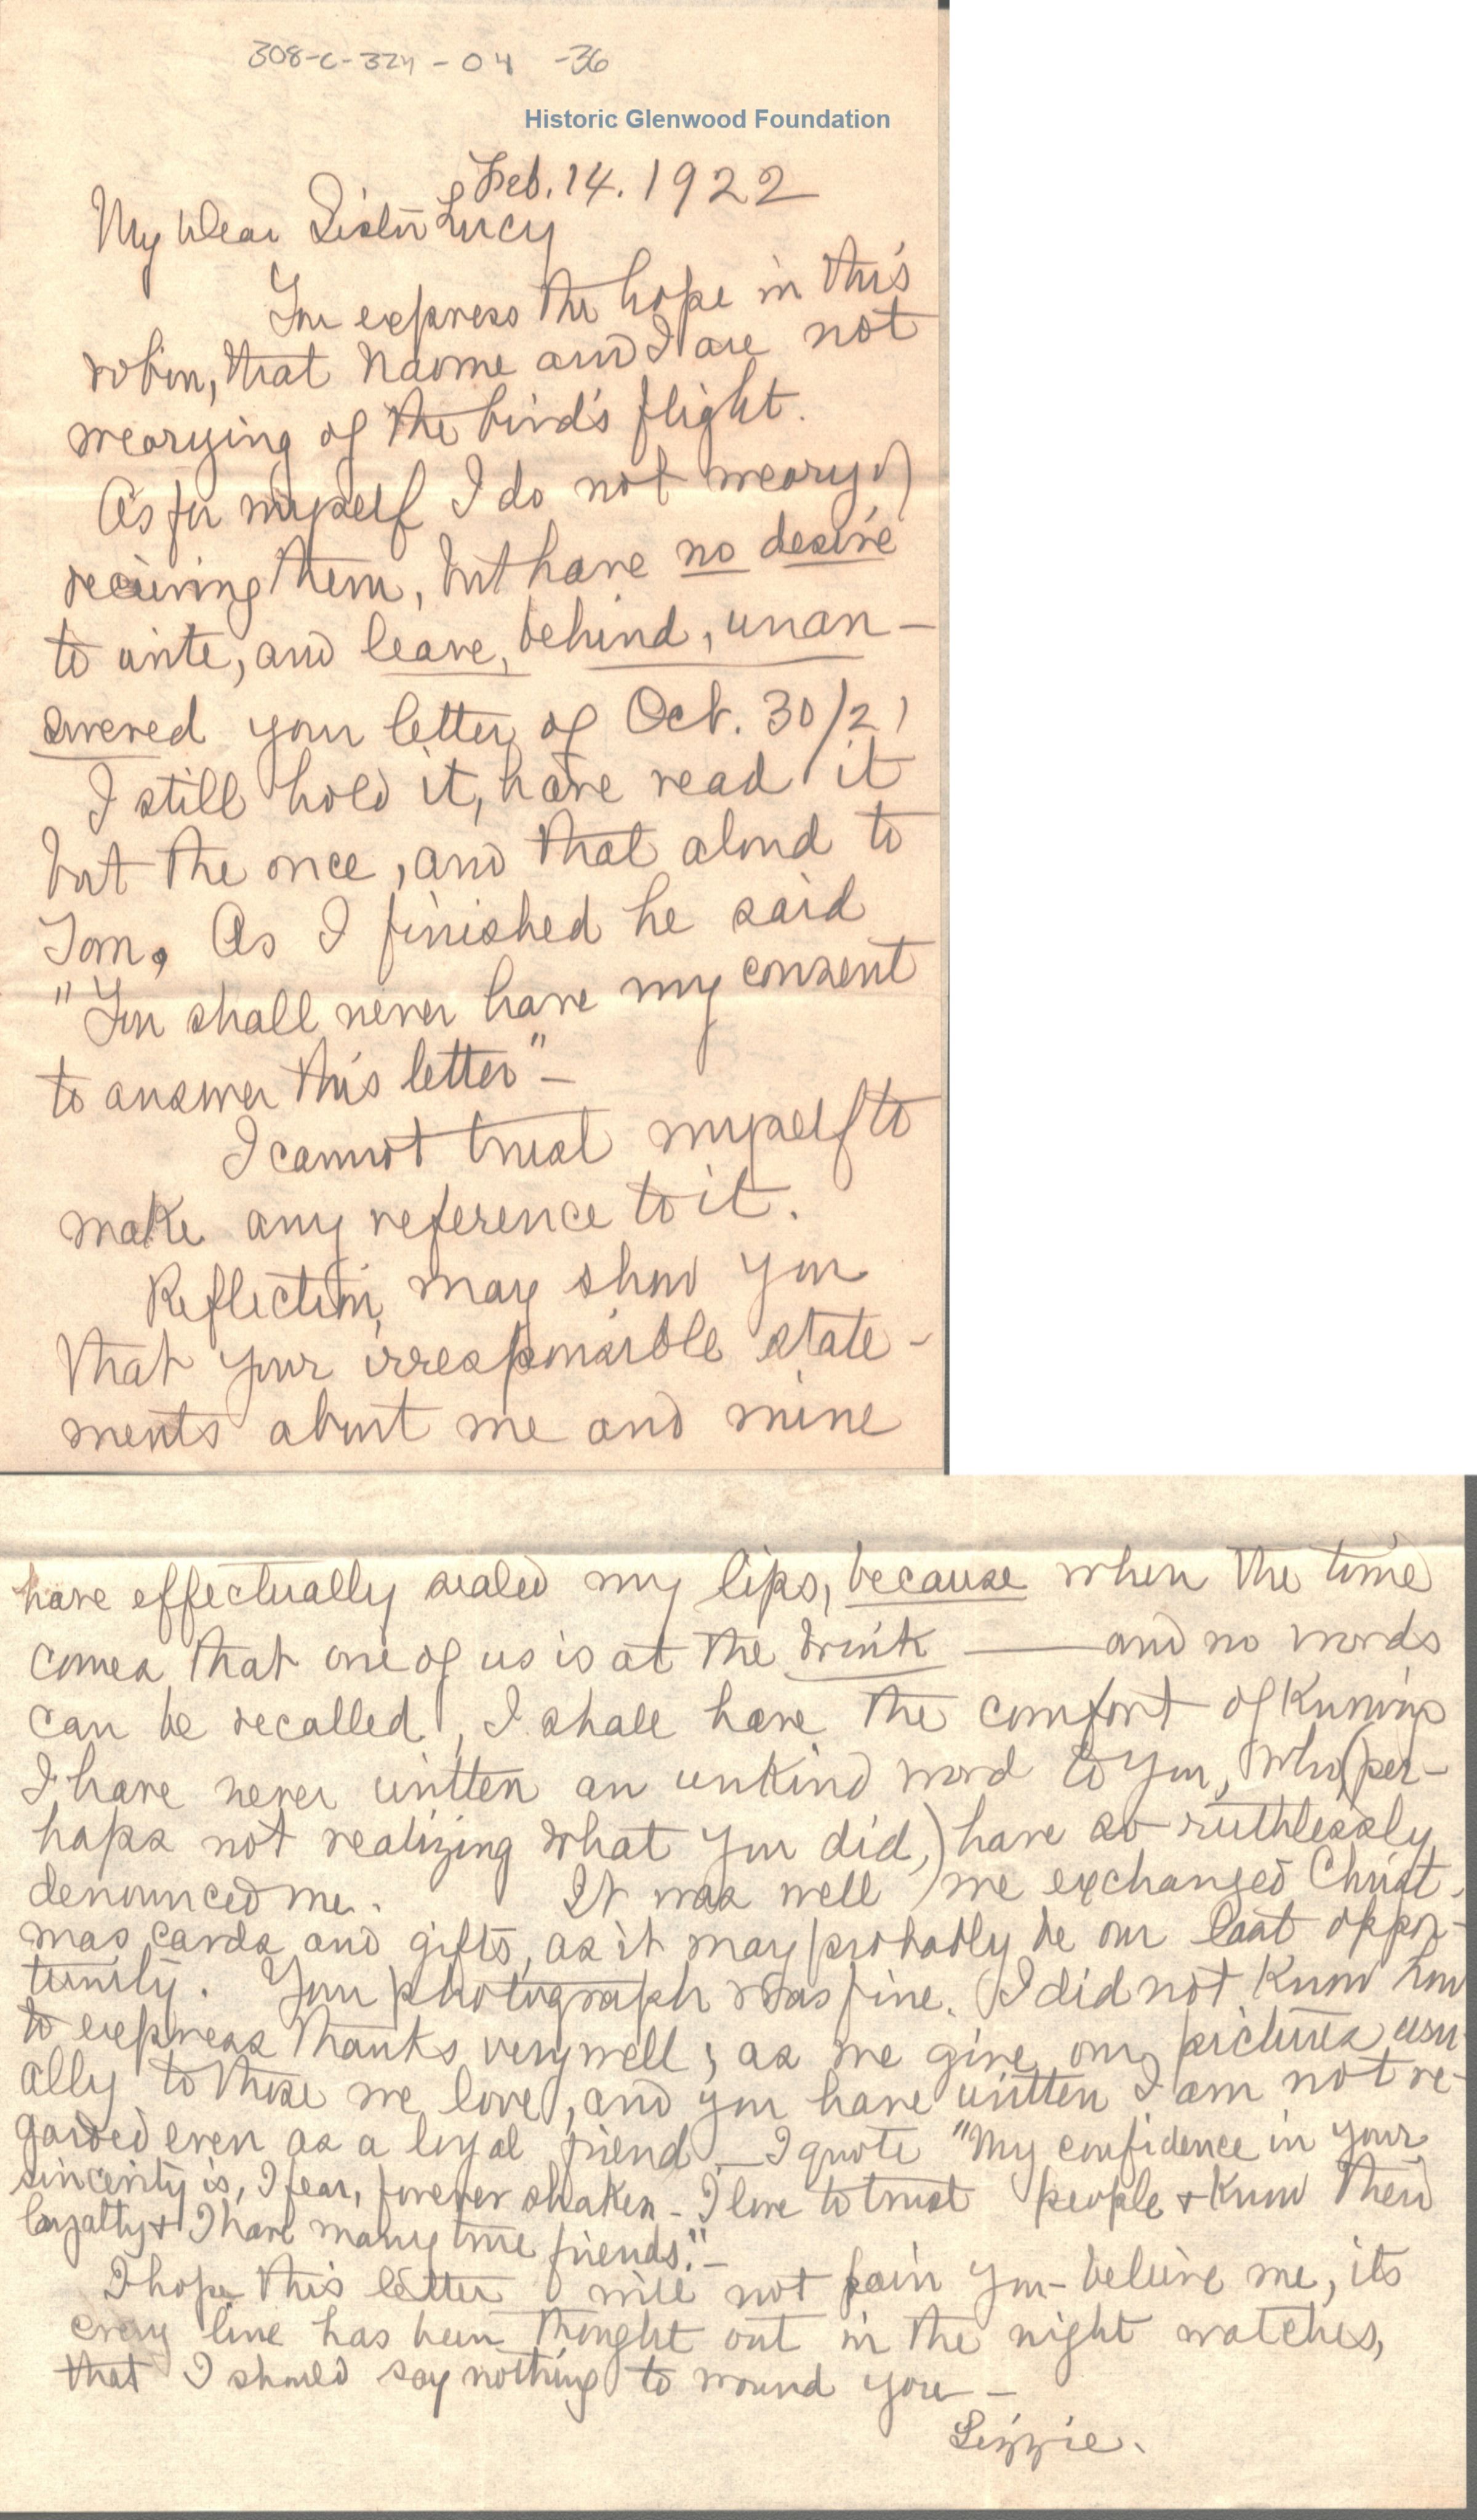 308-C-324-04 -36
Historic Glenwood Foundation
Feb. 14. 1922
My Dear Sister Lucy
You express the hope in this
robin, that Naome and I are not
wearying of the bird's flight.
As for myself I do not weary of
receiving them, but have no desire
to write, and leave, behind, unan-
swered your letter of Oct. 30/21
I still hold it, have read it
but the once, and that aloud to
Tom. As I finished he said
"You shall never have my consent
to answer this letter" -
I cannot trust myself to
make any reference to it.
Reflection, may show you
that your irresponsible state-
ments about me and mine
have effectually sealed my lips, because when the time
comes that one of us is at the brink — and no words
can be recalled, I shall have the comfort of knowing
I have never written an unkind word to you, who (per-
haps not realizing what you did,) have so ruthlessly
denounced me. It was well we exchanged Christ-
mas cards and gifts, as it may probably be our last oppor-
tunity. Your photograph was fine. I did not know how
to express thanks very well, as we give our pictures usu-
ally to those we love, and you have written I am not re-
garded even as a loyal friend - I quote "My confidence in your
sincerity is, I fear, forever shaken - I love to trust people & know their
loyalty & I have many true friends." -
I hope this letter will not pain you - believe me, its
every line has been thought out in the night watches,
that I should say nothing to wound you -
Lizzie.